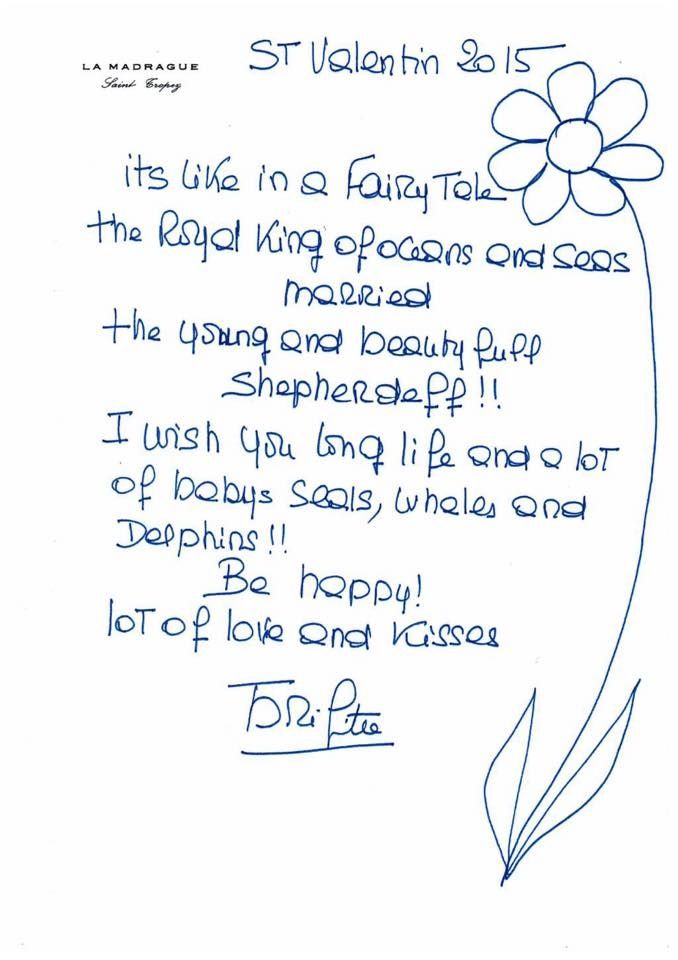 LA MADRAGUE
Saint Tropez
ST Valentin 2015
its like in a Fairy Tale
the Royal King of oceans and seas
married
the young and beauty full
Shepherdess!!
I wish you long life and a lot
of babys seals, whales and
Delphins!!
Be happy!
lot of love and Kisses
Brigitte